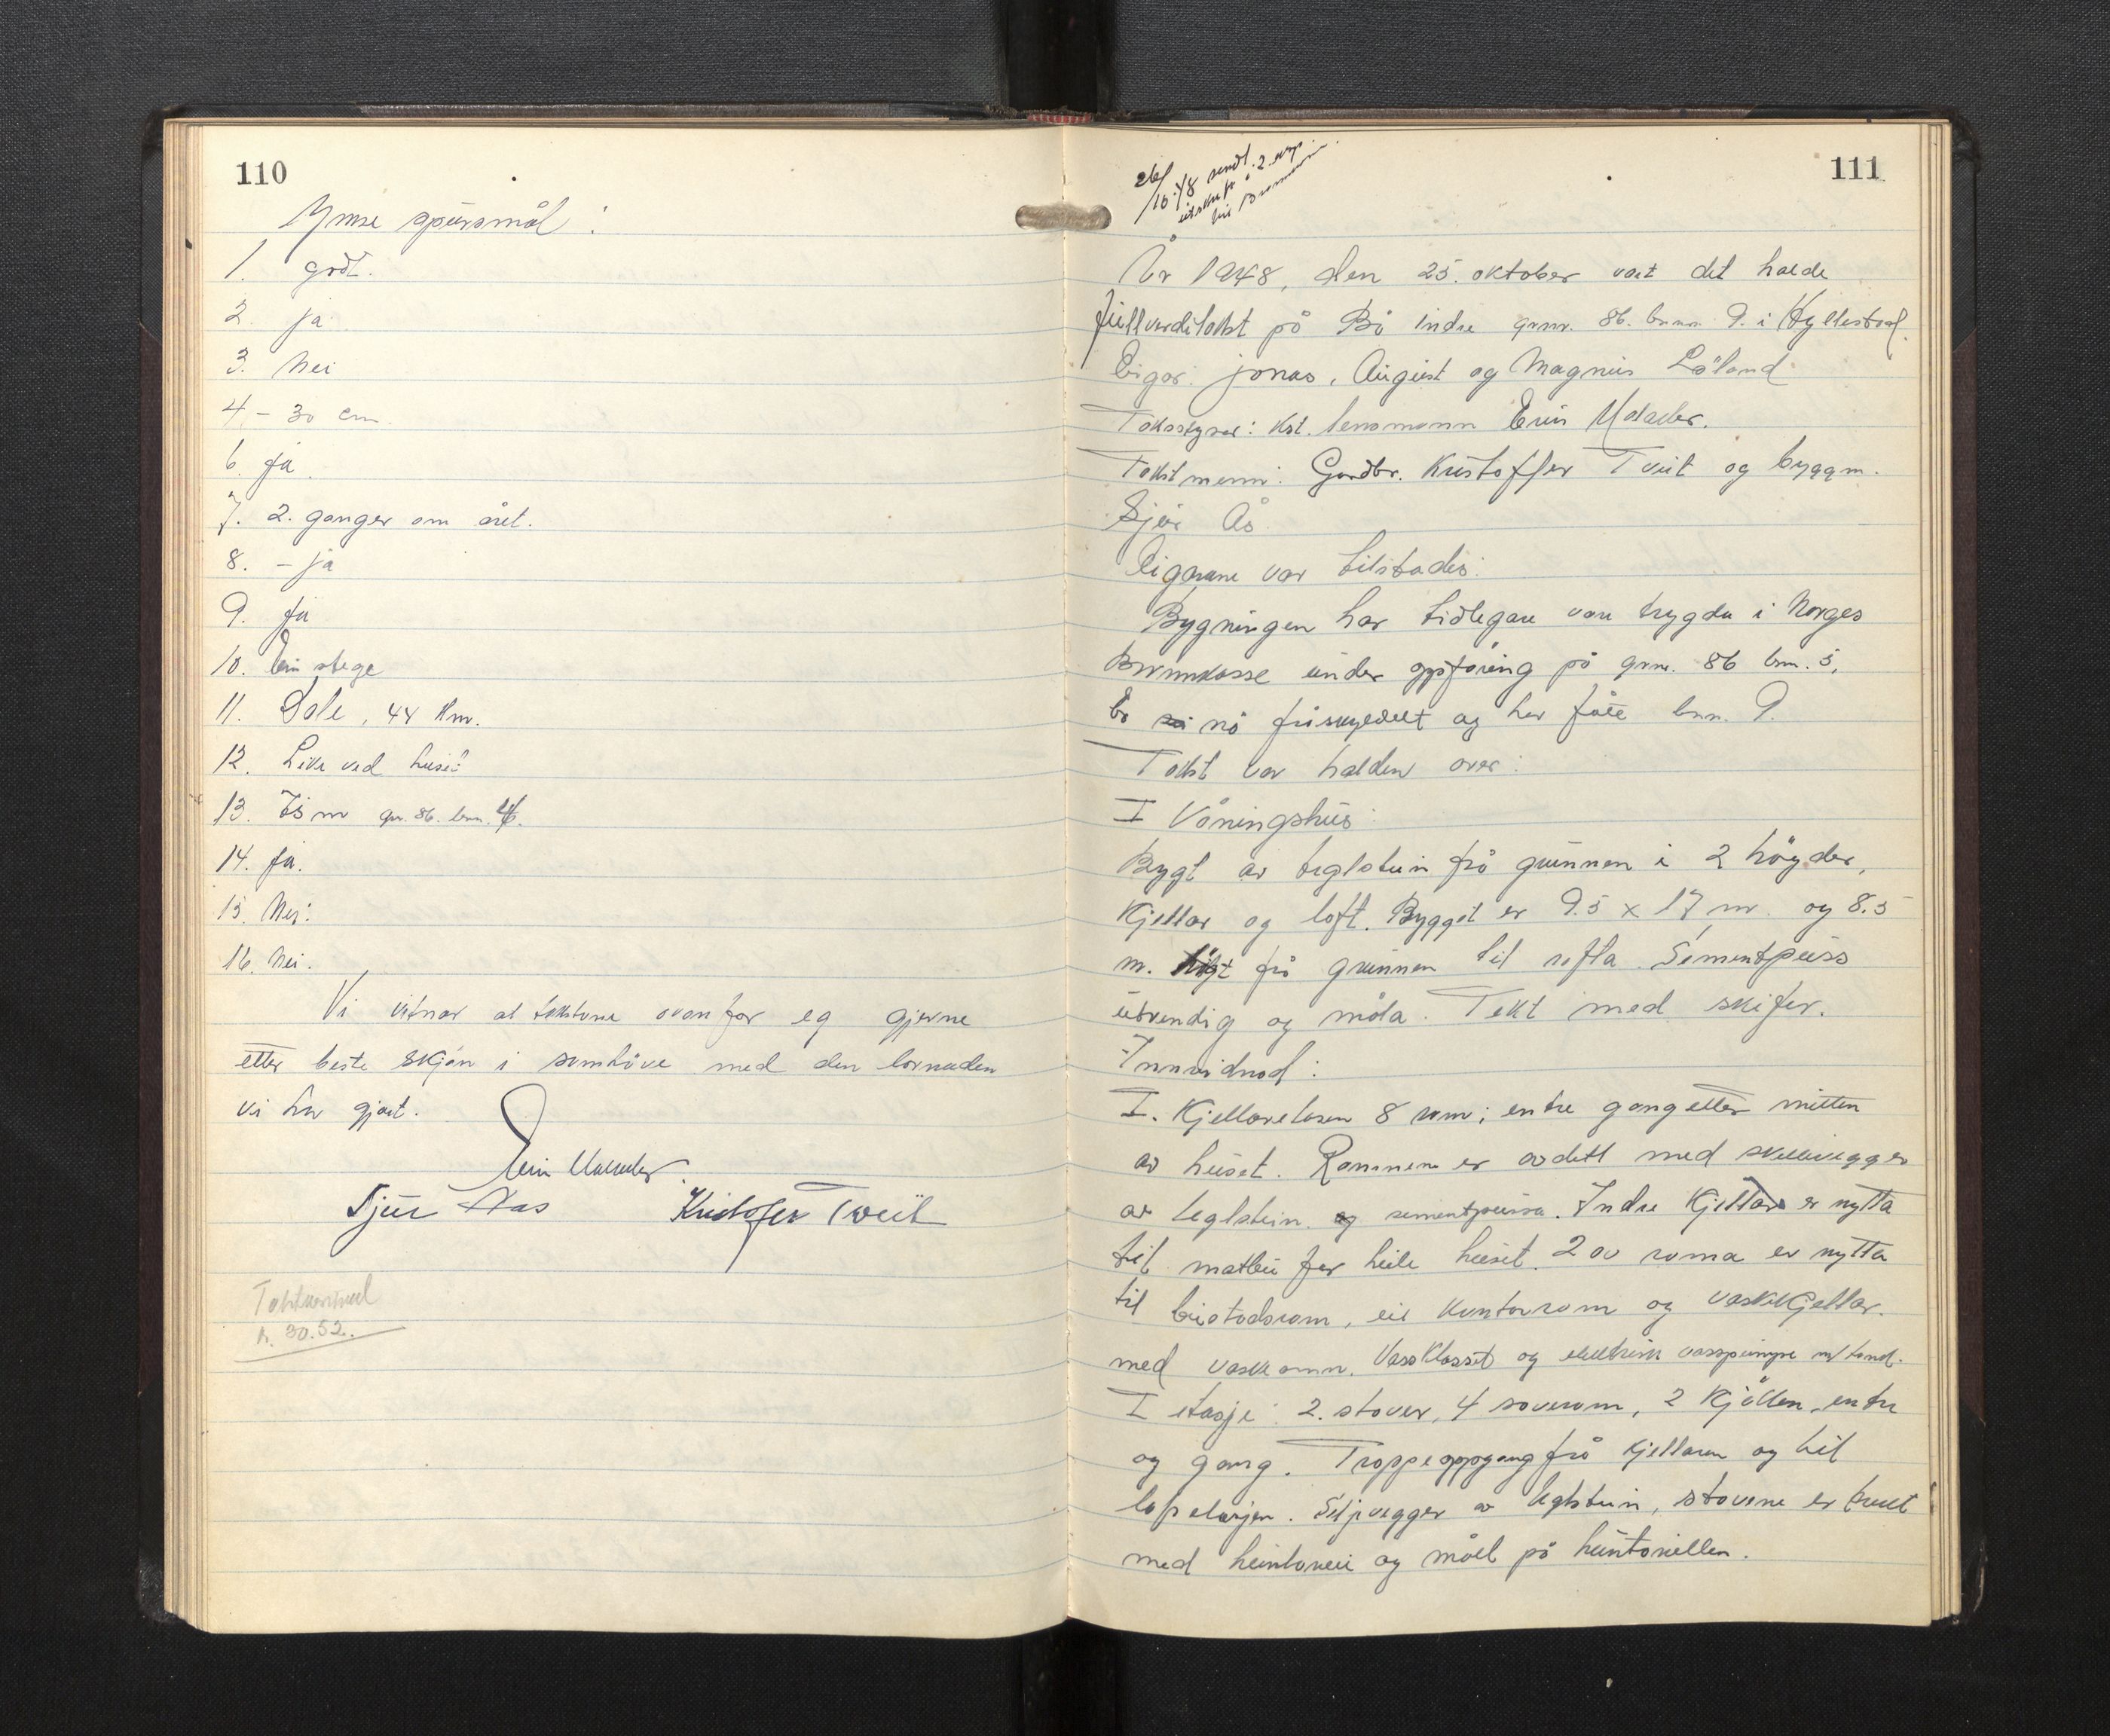 110
Ymse spursmål:
1. godt.
2. ja
3. Nei
4 - 30 cm.
6. ja.
7. 2. ganger om året.
8. - ja
9. ja
10. Ein stege
11. Dale, 44 km.
12. Like ved huset
13. 75 m gnr. 86. bnr. 4.
14. ja.
15. Nei.
16. Nei.
Vi vitnar at takstane ovanfor eg gjerne
etter beste skjøn i samhøve med den
vi har gjort.
Sjur Aas Kristofer Tveit
Takstkostnad
kr. 30.52.
111
26/10-48 sendt
utskr. i 2 eks.
til
År 1948, den 25. oktober vart det halde
fullverditakst på Bø indre gnr. 86. bnr. 9. i Hyllestad.
Eigar: Jonas, August og Magnus Løland
Takststyrar: Kst. lensmann
Takstmenn: Gardbr. Kristoffer Tveit og byggm.
Sjur Ås.
Eigarane var tilstades.
Bygningen har tidlegare vore trygda i Norges
Brannkasse under oppføring på gnr. 86 bnr. 5,
Er nå fråskyldelt og har fått bnr. 9.
Takst var halden over:
I Våningshus:
Bygt av teglstein frå grunnen i 2 høgder,
Kjellar og loft. Bygget er 9.5 x 17 m. og 8.5
m. høgt frå grunnen til rafta. Sementpuss
utvendig og måla. Tekt med skifer.
Innreidnad:
I. Kjelleretasen 8 rom; entre gang etter mitten
av huset. Rommene er avdelt med skillevegger
av teglstein og sementpussa. Indre Kjellar er nytta
til matbu for heile huset. 2 av roma er nytta
til bustadsrom, eit kontorrom og vaskekjellar.
med vaskeomn. Vassklosett og elektrisk vasspumpe m/tank.
I etasje: 2. stover, 4 soverom, 2 Kjøkken, entre
og gang. Trappeoppgang frå kjellaren og til
loftetasjen. Skiljevegger av teglstein, stovene er trekt
med huntonit og målt på huntonitten.